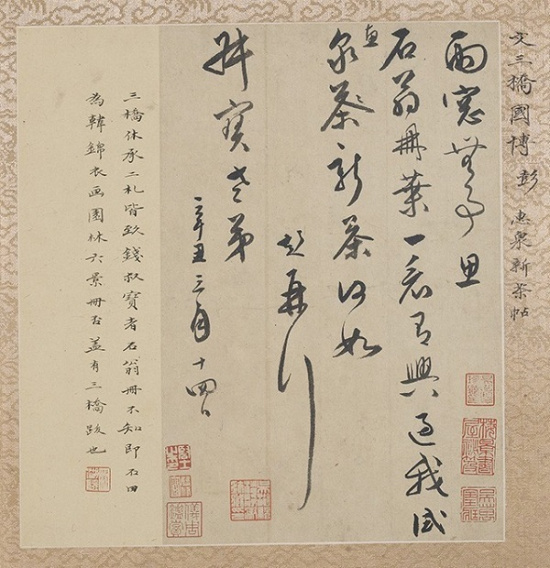 文三橋國博彭 惠泉新茶帖
雨窓無事思
石翁冊葉一看有興過我試
惠泉茶新茶何如
彭再行
叔寶老弟
辛丑三月十四日
三橋休承二札皆致錢叔寶者石翁冊不知即石田
為韓錦衣画園林六景冊否蓋有三橋跋也